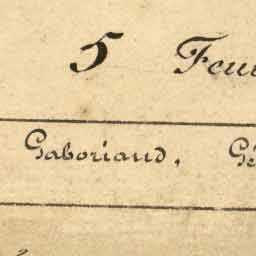 5 Feui
Gaboriaud, Gé